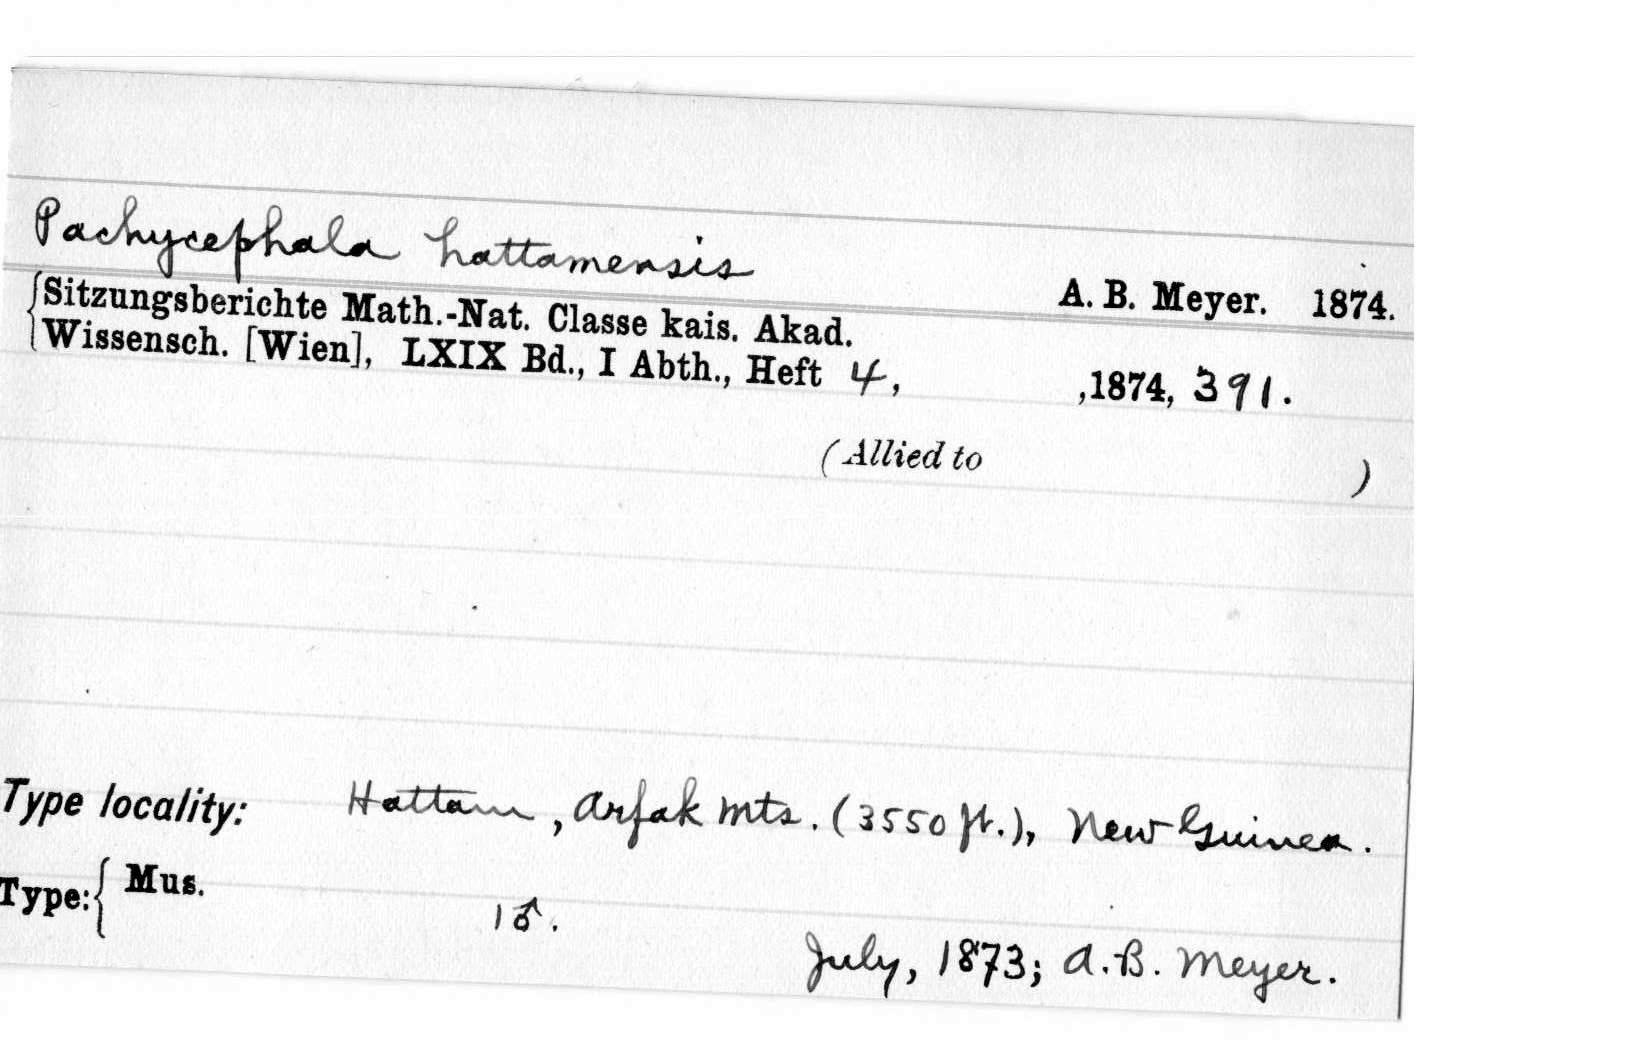 Pachycephala hattamensis
A. B. Meyer. 1874.
Sitzungsberichte Math.-Nat. Classe kais. Akad.
Wissensch. [Wien], LXIX Bd., I Abth., Heft 4, ,1874, 391.
(Allied to )
Type locality: Hattam, Arfak Mts. (3550 ft.), New Guinea.
Type: Mus.
1♂.
July, 1873; A. B. Meyer.